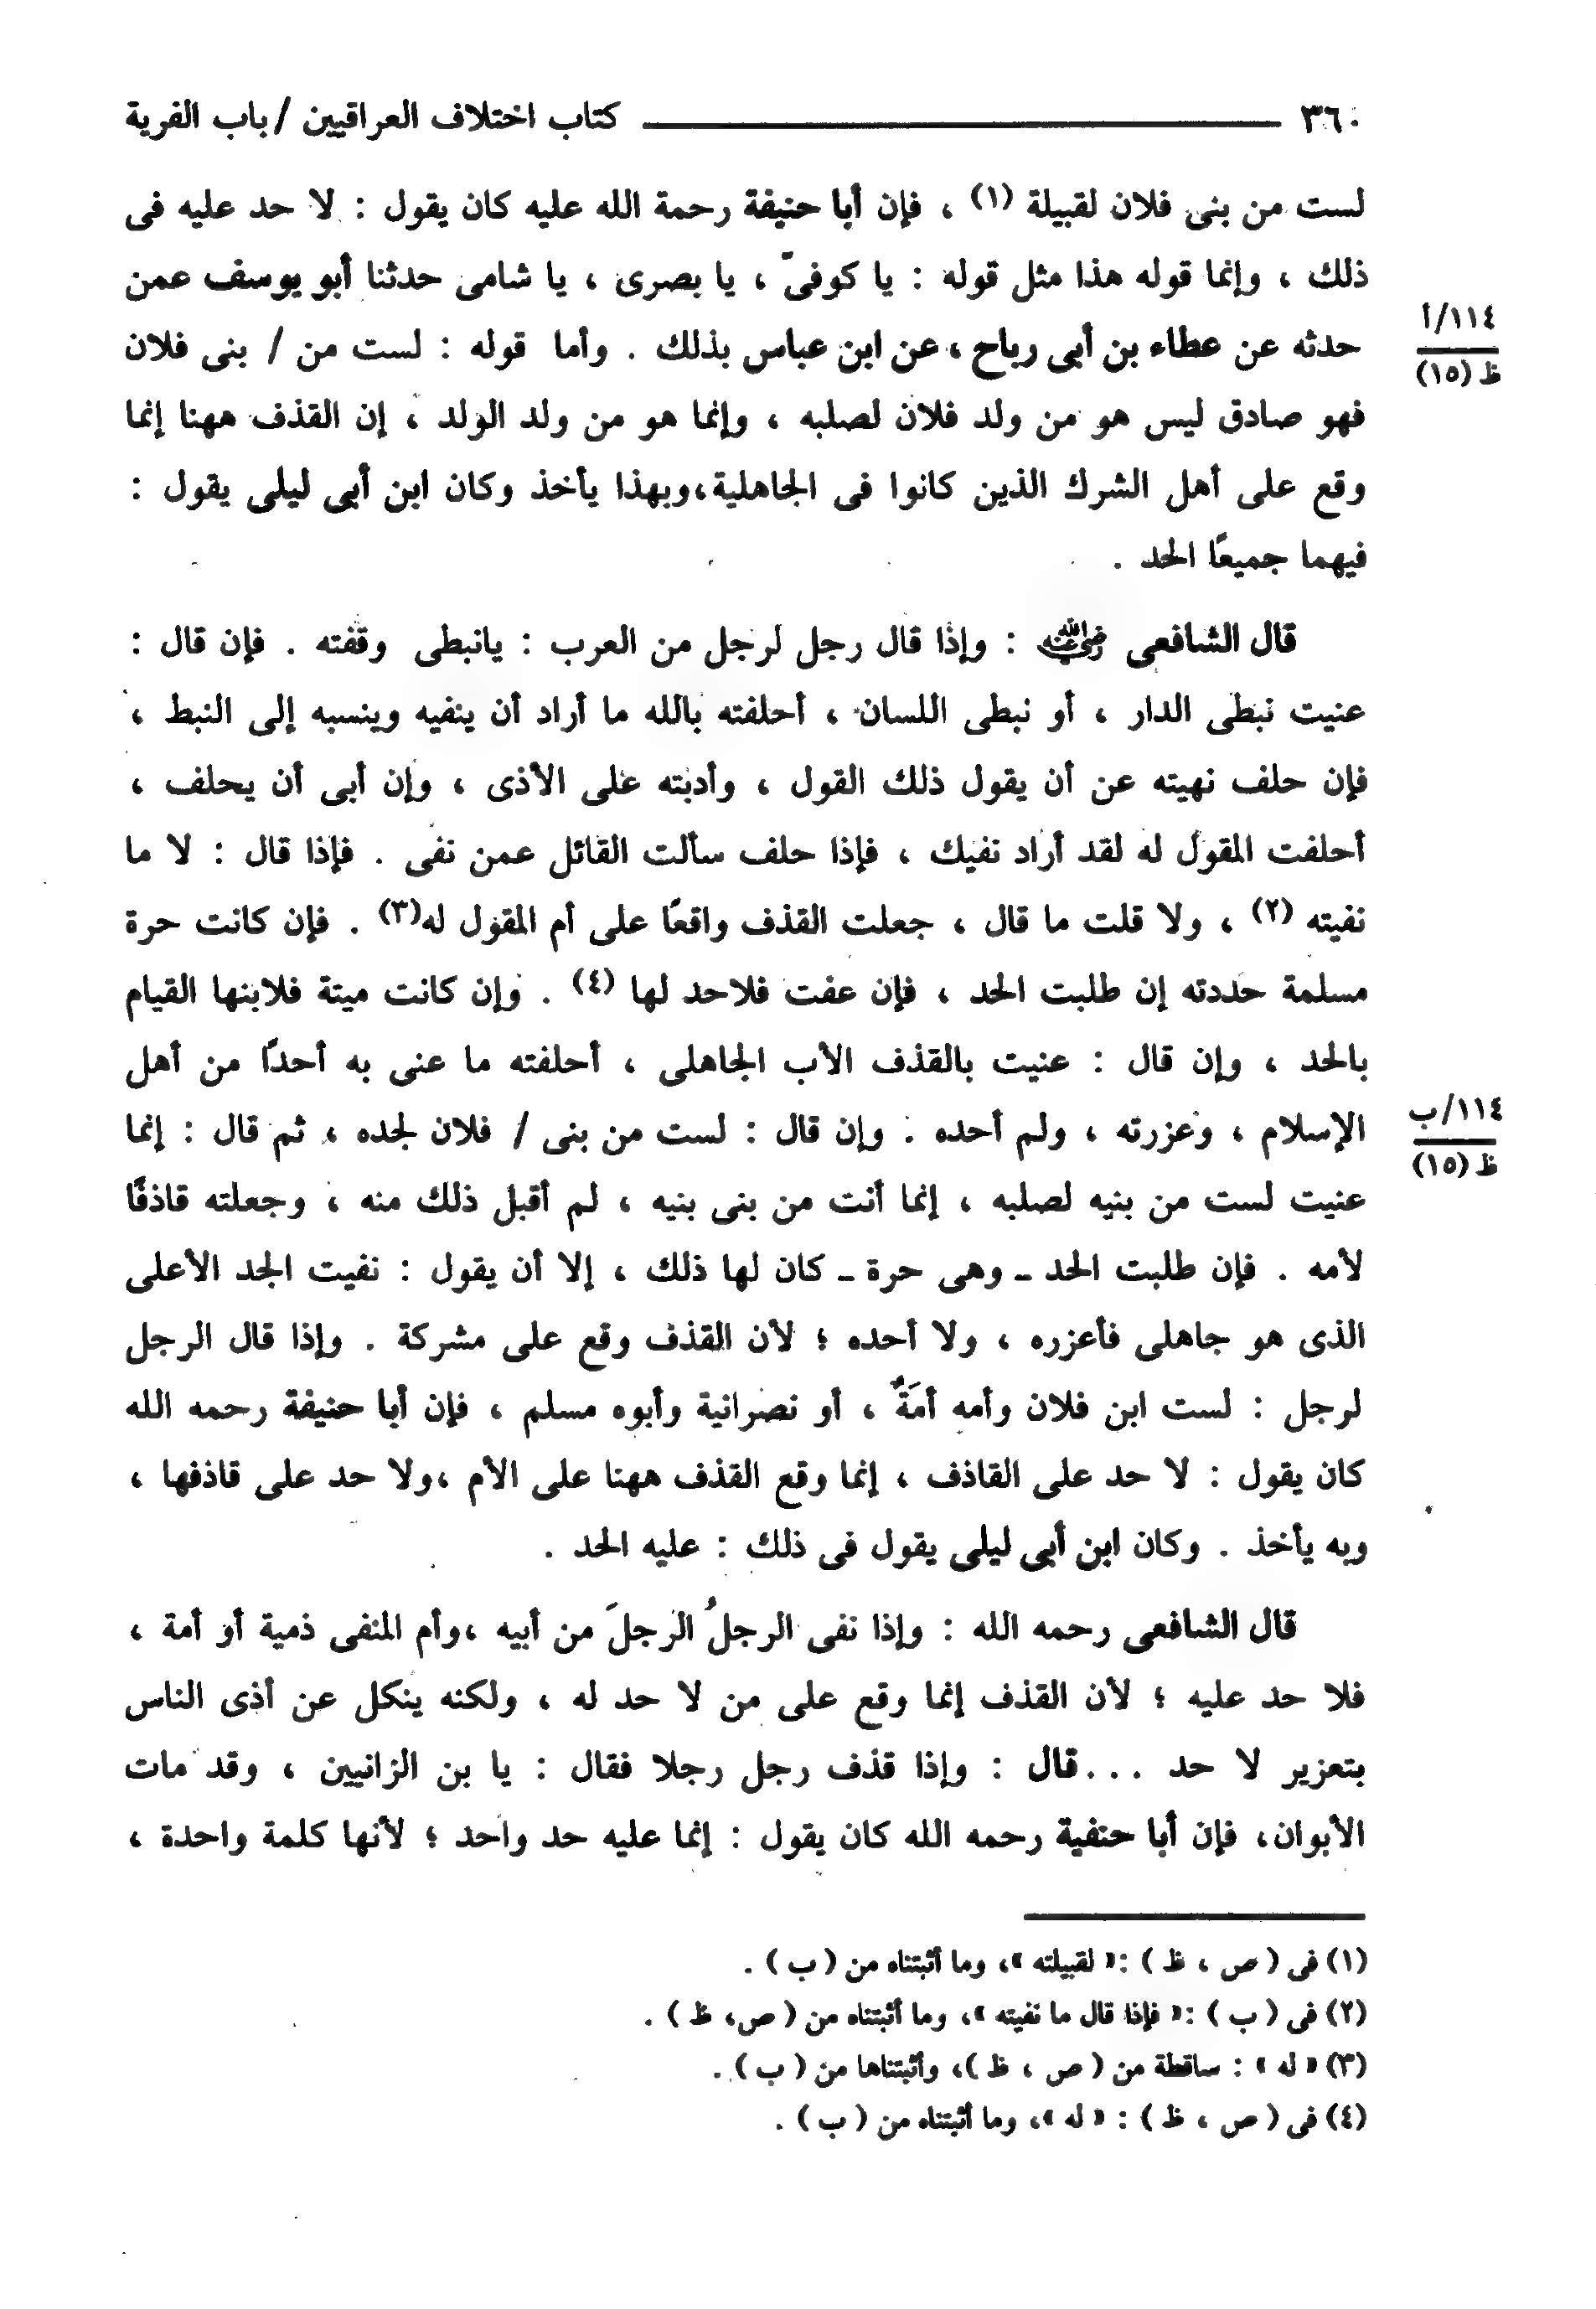 ٣٦٠ كتاب اختلاف العراقيين / باب الفرية
لست من بنى فلان لقبيلة (١) ، فإن أبا حنيفة رحمة الله عليه كان يقول : لا حد عليه فى
ذلك ، وإنما قوله هذا مثل قوله : يا كوفىّ ، يا بصرى ، يا شامى حدثنا أبو يوسف عمن
حدثه عن عطاء بن أبى رباح ، عن ابن عباس بذلك . وأما قوله : لست من / بنى فلان
١١٤/أ
ظ (١٥)
فهو صادق ليس هو من ولد فلان لصلبه ، وإنما هو من ولد الولد ، إن القذف ههنا إنما
وقع على أهل الشرك الذين كانوا فى الجاهلية ،وبهذا يأخذ وكان ابن أبى ليلى يقول :
فيهما جميعًا الحد .
قال الشافعى رضي الله عنه : وإذا قال رجل لرجل من العرب : يانبطى وقفته . فإن قال :
عنيت نبطى الدار ، أو نبطى اللسان ، أحلفته بالله ما أراد أن ينفيه وينسبه إلى النبط ،
فإن حلف نهيته عن أن يقول ذلك القول ، وأدبته على الأذى ، وإن أبى أن يحلف ،
أحلفت المقول له لقد أراد نفيك ، فإذا حلف سألت القائل عمن نفى . فإذا قال : لا ما
نفيته (٢) ، ولا قلت ما قال ، جعلت القذف واقعًا على أم المقول له(٣) . فإن كانت حرة
مسلمة حددته إن طلبت الحد ، فإن عفت فلاحد لها (٤) . وإن كانت ميتة فلابنها القيام
بالحد ، وإن قال : عنيت بالقذف الأب الجاهلى ، أحلفته ما عنى به أحدًا من أهل
الإسلام ، وعزرته ، ولم أحده . وإن قال : لست من بنى / فلان لجده ، ثم قال : إنما
١١٤/ب
ظ (١٥)
عنيت لست من بنيه لصلبه ، إنما أنت من بنى بنيه ، لم أقبل ذلك منه ، وجعلته قاذفًا
لأمه . فإن طلبت الحد ـ وهى حرة ـ كان لها ذلك ، إلا أن يقول : نفيت الجد الأعلى
الذى هو جاهلى فأعزره ، ولا أحده ؛ لأن القذف وقع على مشركة . وإذا قال الرجل
لرجل : لست ابن فلان وأمه أمَةٌ ، أو نصرانية وأبوه مسلم ، فإن أبا حنيفة رحمه الله
كان يقول : لا حد على القاذف ، إنما وقع القذف ههنا على الأم ،ولا حد على قاذفها ،
وبه يأخذ . وكان ابن أبى ليلى يقول فى ذلك : عليه الحد .
قال الشافعى رحمه الله : وإذا نفى الرجلُ الرجلَ من أبيه ،وأم المنفى ذمية أو أمة ،
فلا حد عليه ؛ لأن القذف إنما وقع على من لا حد له ، ولكنه ينكل عن أذى الناس
بتعزير لا حد ...قال : وإذا قذف رجل رجلا فقال : يا بن الزانيين ، وقد مات
الأبوان، فإن أبا حنفية رحمه الله كان يقول : إنما عليه حد واحد ؛ لأنها كلمة واحدة ،
(١) فى ( ص ، ظ ) :« لقبيلته »، وما أثبتناه من ( ب ) .
(٢) فى ( ب ) :« فإذا قال ما نفيته »، وما أثبتناه من ( ص، ظ ) .
(٣) « له » : ساقطة من ( ص ، ظ )، وأثبتناها من ( ب ) .
(٤) فى ( ص ، ظ ) : « له »، وما أثبتناه من ( ب ) .